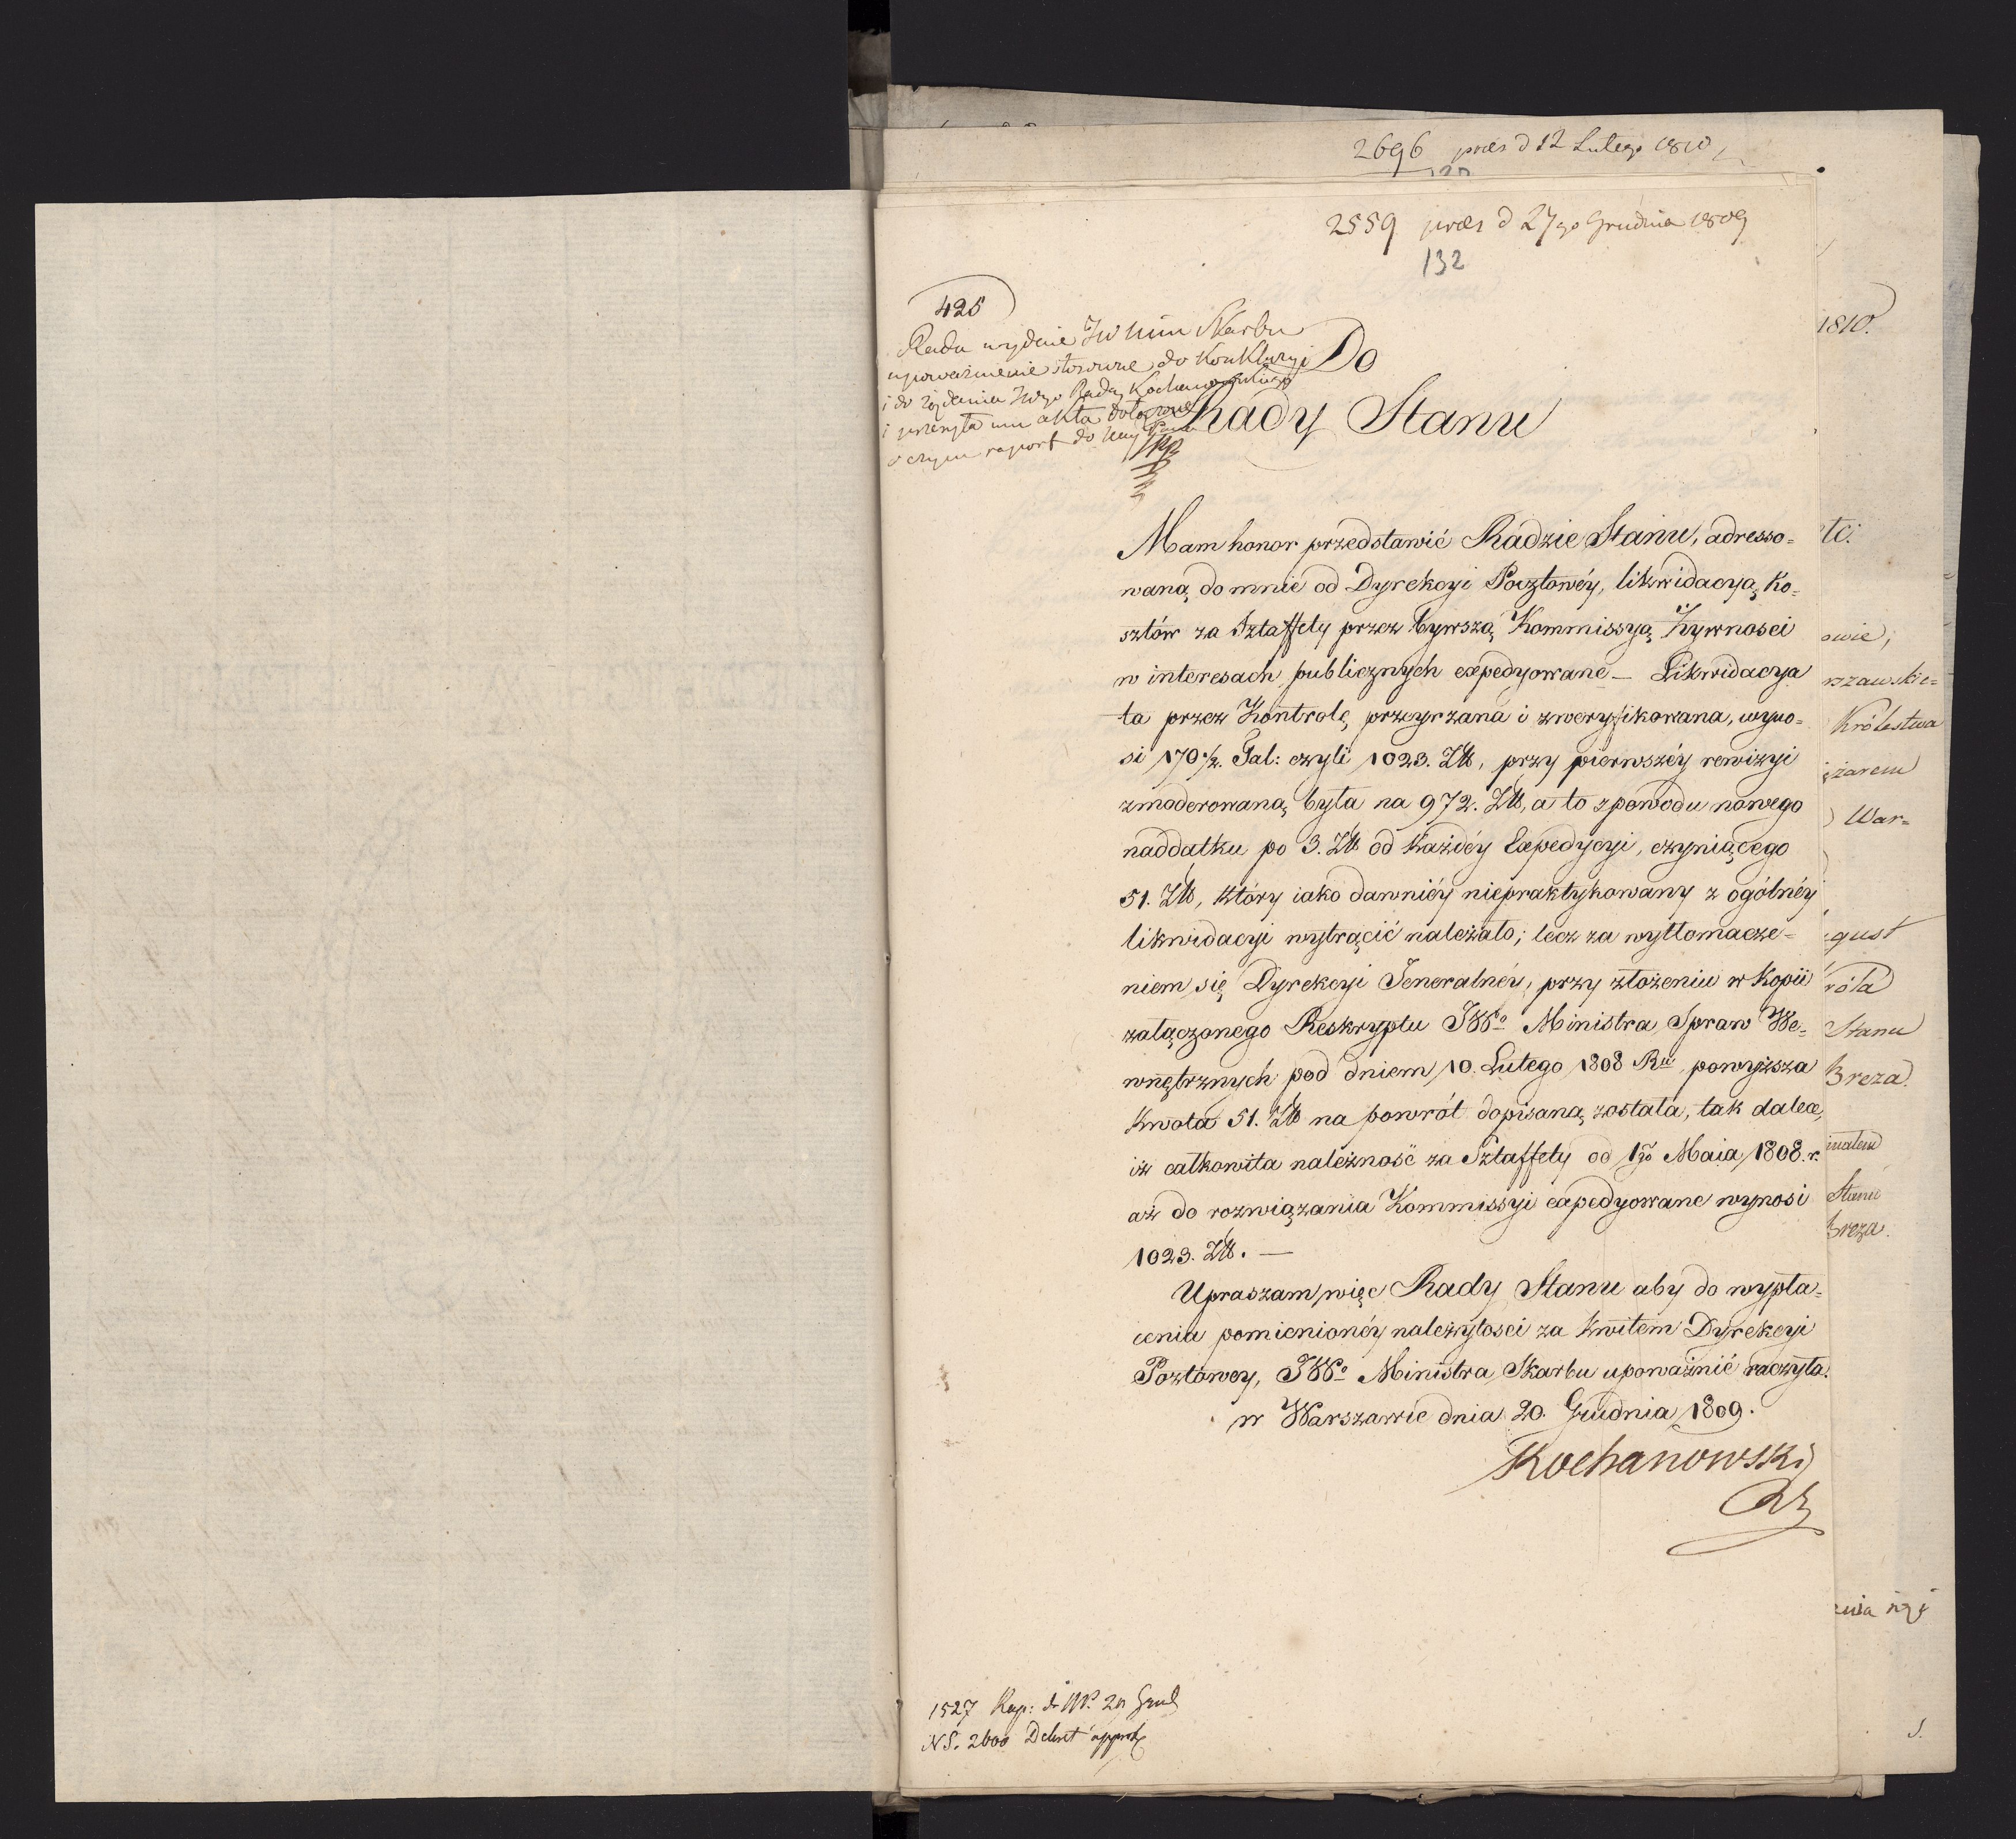 2696 praes d 12 Lutego 1810
2559 praes d 27go Grudnia 1809
132
425
Rada wydaie JW Min Skarbu
upoważnienie stosowne do Konkluzyi
i do żądania JWgo Radcy Kochanowskiego
i przesyła mu akta
o czym raport do
Do
Rady Stanu
Mam honor przedstawić Radzie Stanu, adresso=
waną do mnie od Dyrekcyi Pocztowéy, likwidacyą ko=
sztów za Sztaffety przez bywszą Kommissyą Żywnosci
w interesach publicznych expedyowane – Likwidacya
ta przez Kontrolę przeyrzana i zweryfikowana, wyno=
si 170 1/2. Tal: czyli 1023. Złł, przy pierwszéy rewizyi
zmoderowaną była na 972. Złł, a to z powodu nowego
naddatku po 3. Złł od każdéy Expedycyi, czyniącego
51. Złł, który iako dawniéy niepraktykowany z ogólnéy
likwidacyi wytrącić należało; lecz za wytłomacze=
niem się Dyrekcyi Jeneralnéy, przy złożeniu w Kopii
załączonego Reskryptu JWo Ministra Spraw We=
wnętrznych pod dniem 10. Lutego 1808 Ru powyższa
kwota 51. Złł na powrót dopisaną została, tak dalece,
iż całkowita należność za Sztaffety od 1go Maia 1808. r.
aż do rozwiązania Kommissyi expedyowane wynosi
1023. Złł. —
Upraszam więc Rady Stanu aby do wypła=
cenia pomienionéy należytosci za kwitem Dyrekcyi
Poztowey, JWo Ministra Skarbu upoważnić raczyła.
w Warszawie dnia 20. Grudnia 1809.
Kochanowski
1527 Rap: d 29 Grud
NS. 2600 Dekret approb
1810.
tc.
owie,
rszawskie=
Królestwa
ężarem
War=
gust
róla
Stanu
Breza.
inałem
Stanu
Breza.